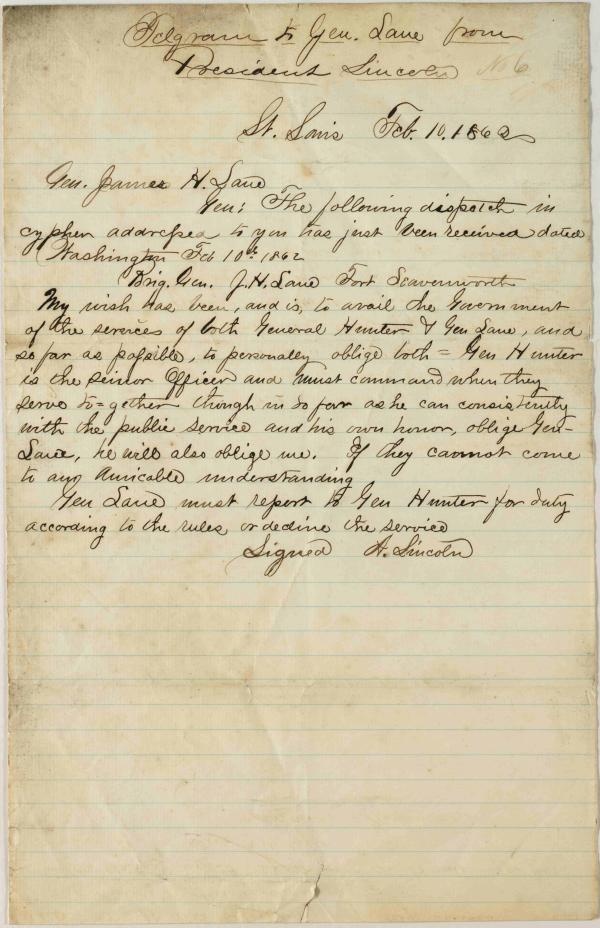 Telgram to Gen. Lane from
President Lincoln No 6
St. Louis Feb. 10. 1862
Gen. James H. Lane
Gen: The following dispatch in
cypher addressed to you has just been received dated
Washington Feb 10th 1862
Brig. Gen. J. H. Lane Fort Leavenworth
My wish has been, and is, to avail the Government
of the services of both General Hunter & Gen Lane, and
so far as possible, to personaley oblige both = Gen Hunter
is the Seinor Officer and must command when they
serve to=gether though in so far as he can consistently
with the public service and his own honor, oblige Gen-
Lane, he will also oblige me. If they cannot come
to any amicable understanding
Gen Lane must report to Gen Hunter for duty
according to the rules, or decline the service
Signed A. Lincoln